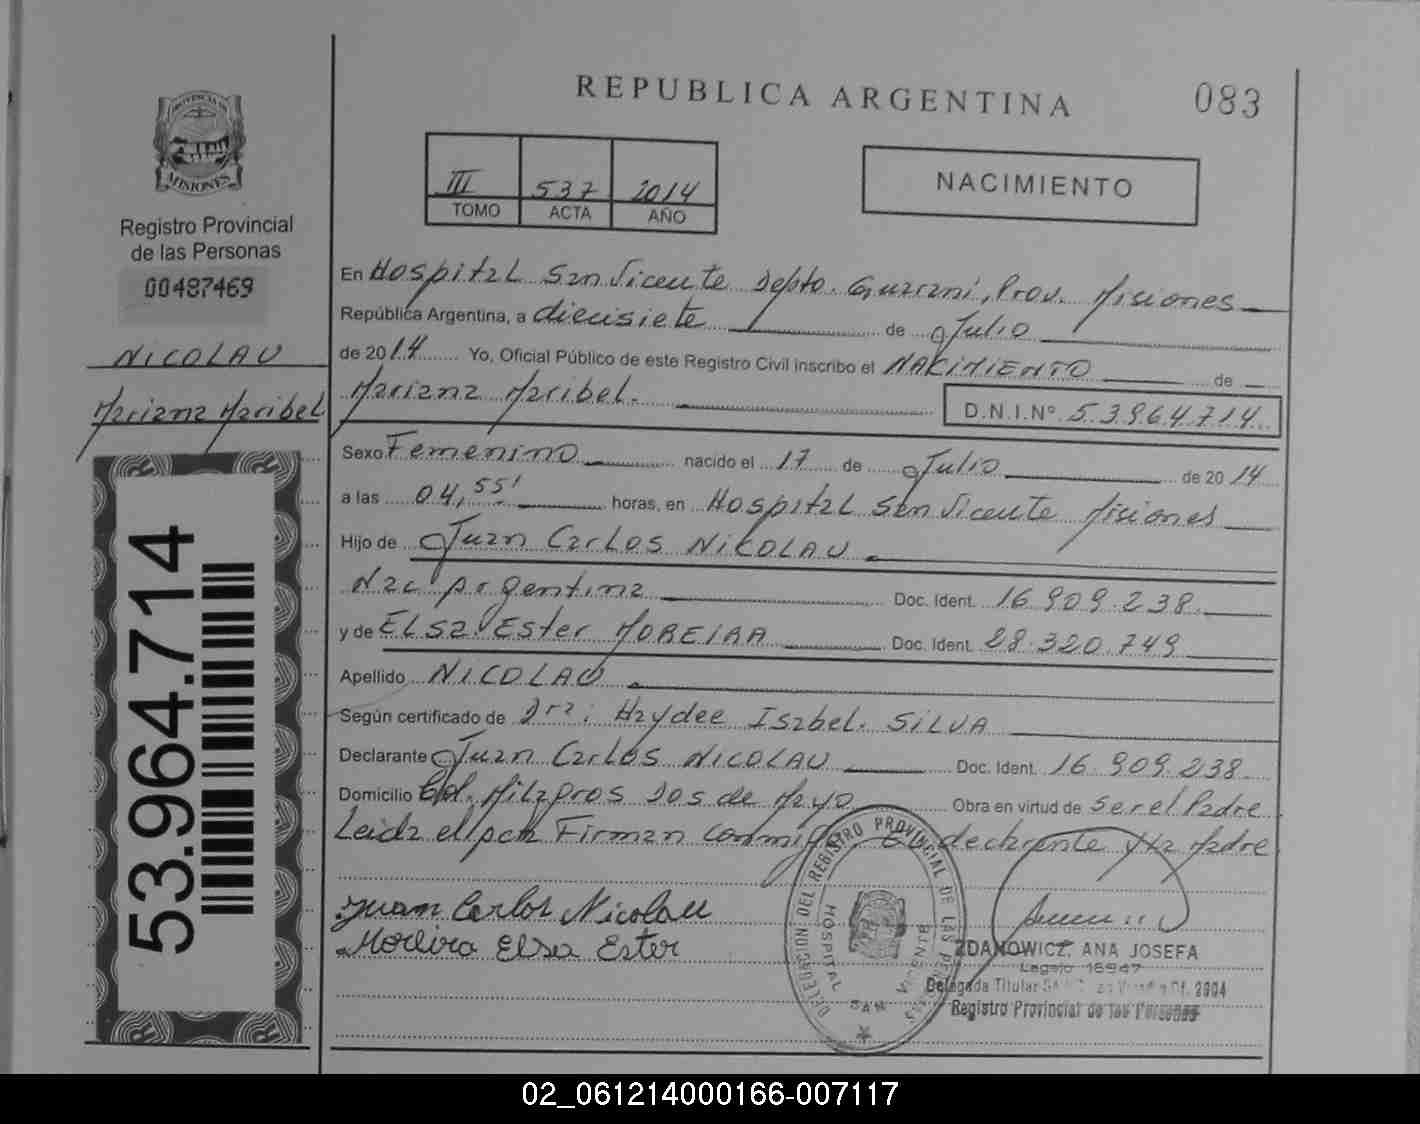 REPUBLICA ARGENTINA
083
PROVINCIA DE
MISIONES
Registro Provincial
de las Personas
00487469
NICOLAU
Mariana Maribel
53.964.714
III 537 2014
TOMO ACTA AÑO
NACIMIENTO
En Hospital San Vicente Depto. Guarani, Prov. Misiones
República Argentina, a diecisiete de Julio
de 2014 Yo, Oficial Público de este Registro Civil inscribo el NACIMIENTO de
Mariana Maribel. D.N.I.Nº 53964714
Sexo Femenino nacido el 17 de Julio de 2014
a las 04,55' horas, en Hospital San Vicente Misiones
Hijo de Juan Carlos NICOLAU
Nac Argentina Doc. Ident. 16.909.238
y de Elsa Ester MOREIRA Doc. Ident. 28.320.749
Apellido NICOLAU
Según certificado de Dra: Haydee Isabel. SILVA
Declarante Juan Carlos NICOLAU Doc. Ident. 16.909.238
Domicilio Col. Milagros Dos de Mayo Obra en virtud de Ser el Padre
Leida el acta Firman conmigo El declarante y la Madre
Juan Carlos Nicolau
Moreira Elsa Ester
DELEGACION DEL REGISTRO PROVINCIAL DE LAS PERSONAS
HOSPITAL SAN VICENTE
ZDANOWICZ, ANA JOSEFA
Legajo 16947
Delegada Titular Of. 2904
Registro Provincial de las Personas
02_061214000166-007117